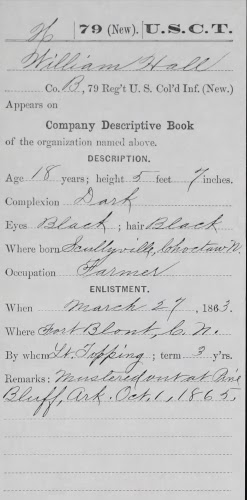 H | 79 (New). | U.S.C.T.
William Hall
Co. B, 79 Reg't U. S. Col'd Inf. (New.)
Appears on
Company Descriptive Book
of the organization named above.
DESCRIPTION.
Age 18 years; height 5 feet 7 inches.
Complexion Dark
Eyes Black; hair Black
Where born Scullyville, Choctaw N.
Occupation Farmer
ENLISTMENT.
When March 27, 1863.
Where Fort Blont, C. N.
By whom Lt. Topping; term 3 y'rs.
Remarks: Mustered out at Pine
Bluff, Ark. Oct. 1, 1865.